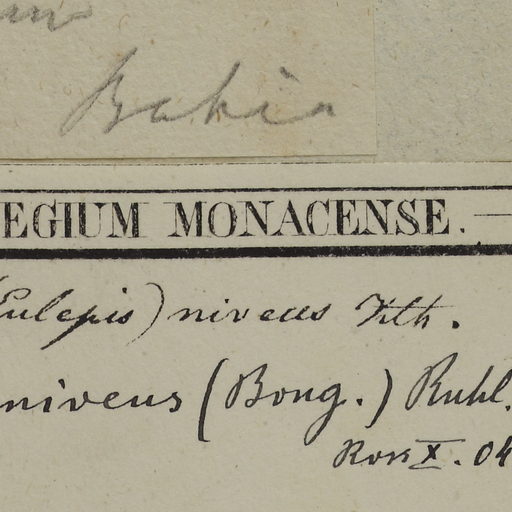 Bahia
EGIUM MONACENSE.
(Eulepis) niveus Kth.
niveus (Bong.) Ruhl.
Ross X. 04